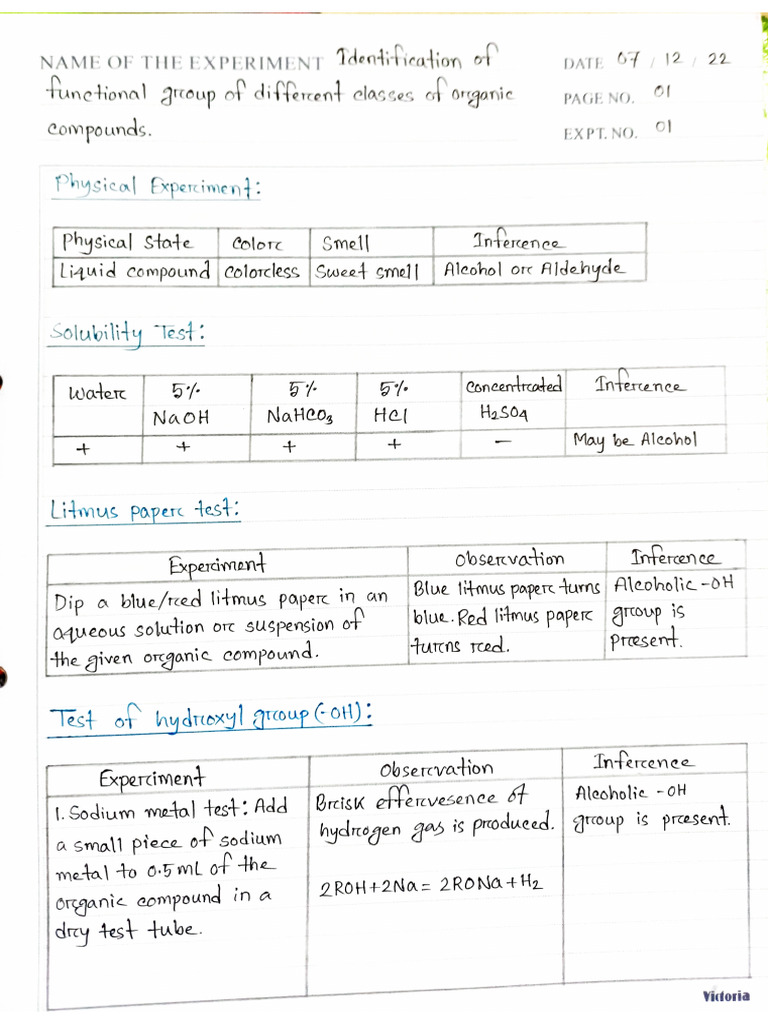 NAME OF THE EXPERIMENT Identification of
DATE 07 / 12 / 22
functional group of different classes of organic
PAGE NO. 01
compounds.
EXPT. NO. 01
Physical Experiment:
Physical State Color Smell Inference
Liquid compound Colorless Sweet smell Alcohol or Aldehyde
Solubility Test:
Water 5% 5% 5% Concentrated Inference
NaOH NaHCO₃ HCl H₂SO₄
+ + + + − May be Alcohol
Litmus paper test:
Experiment Observation Inference
Dip a blue/red litmus paper in an
aqueous solution or suspension of
the given organic compound.
Blue litmus paper turns
blue. Red litmus paper
turns red.
Alcoholic -OH
group is
present.
Test of hydroxyl group (-OH):
Experiment Observation Inference
1. Sodium metal test: Add
a small piece of sodium
metal to 0.5 mL of the
organic compound in a
dry test tube.
Brisk effervesence of
hydrogen gas is produced.
2ROH + 2Na = 2RONa + H₂
Alcoholic -OH
group is present.
Victoria